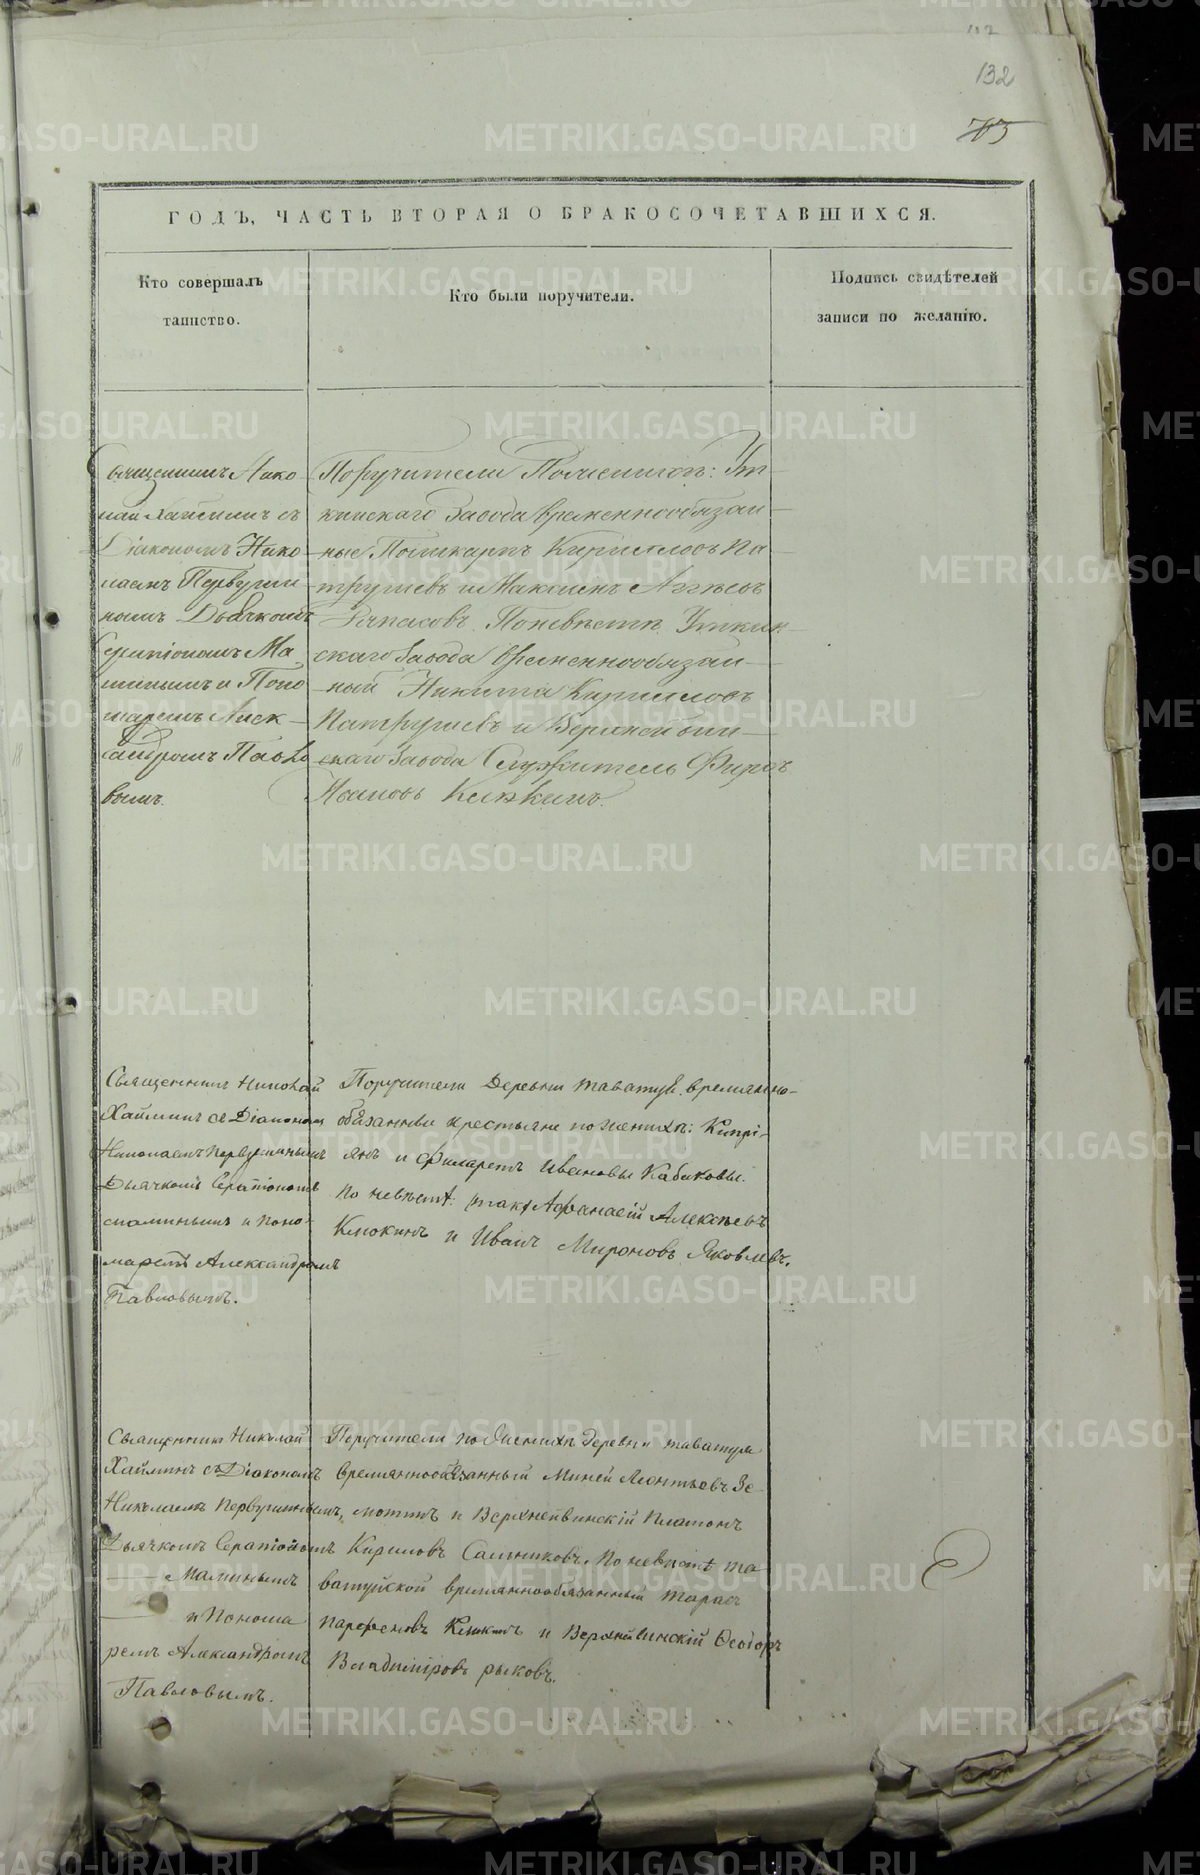 132
ГОДЪ, ЧАСТЬ ВТОРАЯ О БРАКОСОЧЕТАВШИХСЯ.
Кто совершалъ
таинство.
Кто были поручители.
Подпись свидѣтелей
записи по желанію.
Священникъ Нико
лай Хайминъ съ
Діакономъ Нико
лаемъ Первушин
нымъ Дьячкомъ
Серапіономъ Ма
минымъ и Поно
маремъ Алек
сандромъ Павло
вымъ.
Поручители По женихѣ: Ут
кинскаго Завода временнообязан
ные Кириловъ Па
трушевъ и Максимъ
По невѣстѣ Уткин
скаго Завода временнообязан
ный Никита Кириловъ
Патрушевъ и Верхнейвин
скаго Завода Служитель
Ивановъ
Священникъ Николай
Хайминъ съ Діакономъ
Николаемъ Первушинымъ
Дьячкомъ Серапіономъ
маминымъ и поно-
маремъ Александромъ
Павловымъ.
Поручители Деревни таватуй временно-
обязанные крестьяне по женихѣ: Кипрі-
янъ и Филаретъ Ивановы Кабаковы.
по невѣстѣ: Афанасій Алексѣевъ
Клюкинъ и Иванъ Мироновъ Яковлевъ.
Священникъ Николай
Хайминъ съ Діакономъ
Николаемъ Первушинымъ,
Дьячкомъ Серапіономъ
Маминымъ
и Понома
ремъ Александромъ
Павловымъ.
Поручители по женихѣ деревни таватуя
временнообязанный Миней Леонтьевъ Зе-
мотинъ и Верхнейвинскій Платонъ
Кириловъ Сальниковъ. по невѣстѣ та
ватуйской временнообязанный тарасъ
парфеновъ Клюкинъ и Верхнейвинскій Ѳеодоръ
Владиміровъ рыковъ.
METRIKI.GASO-URAL.RU